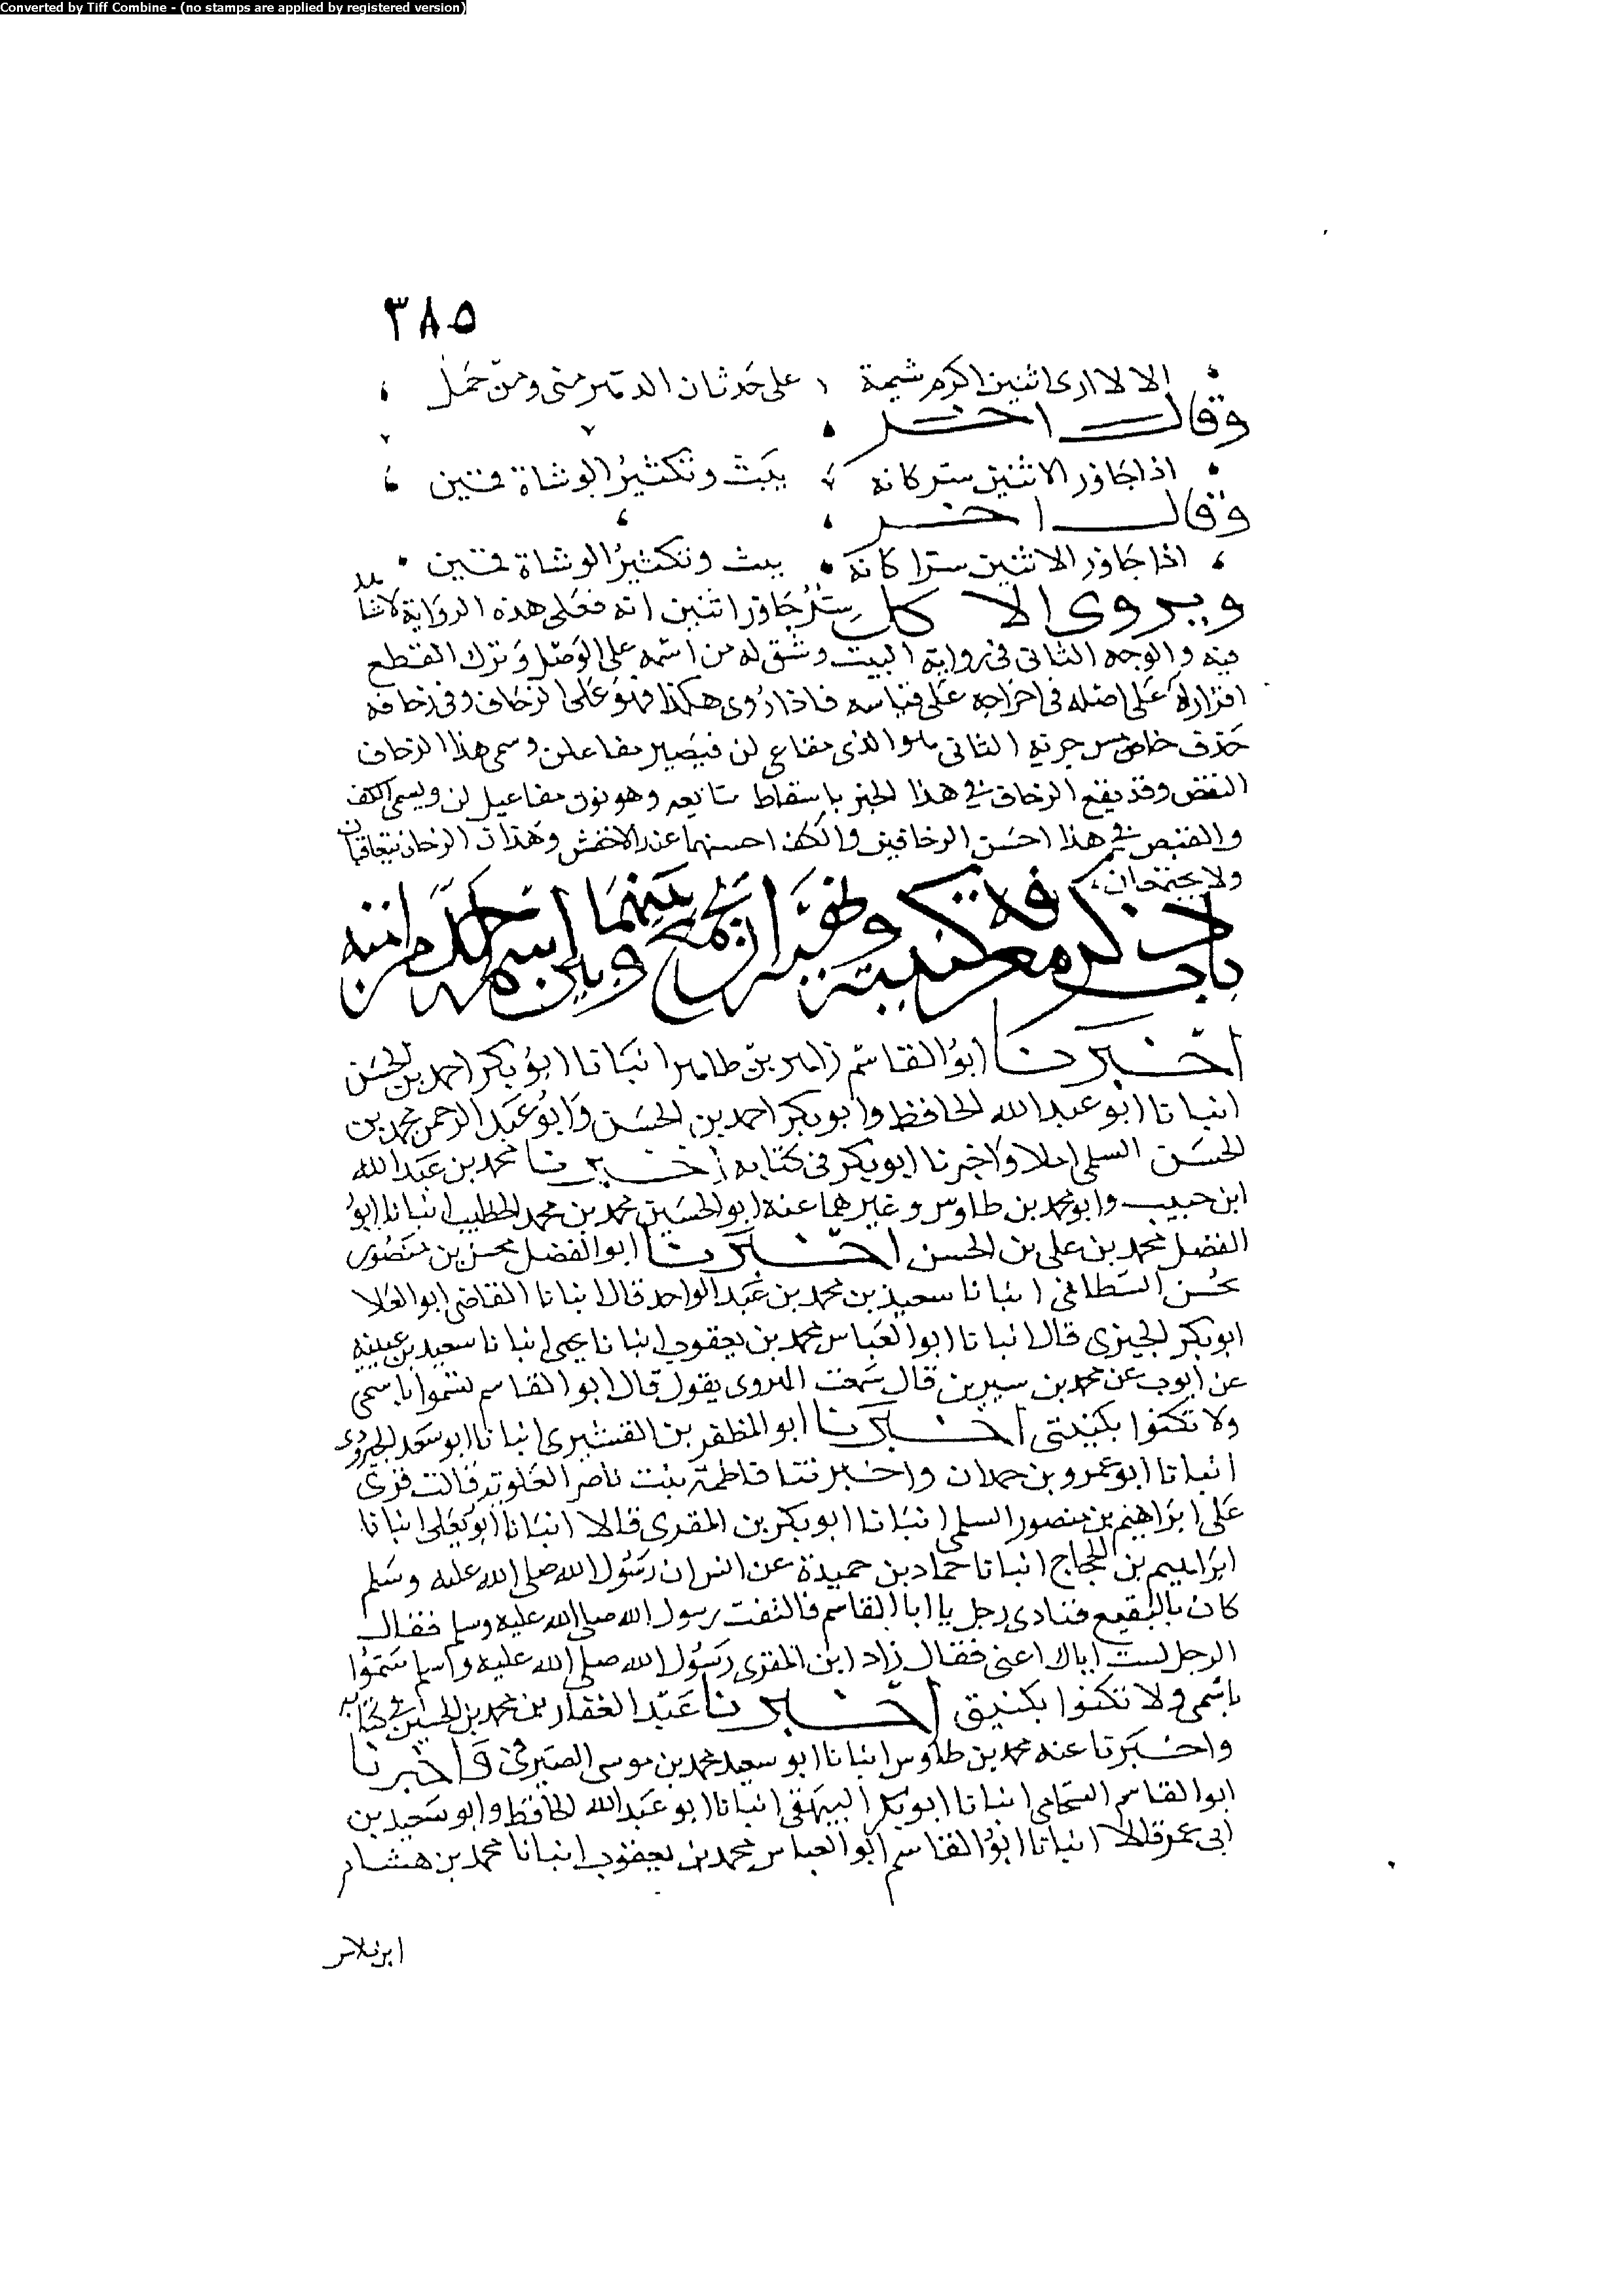 Converted by Tiff Combine - (no stamps are applied by registered version)
٣٨٥
الا لا ارى اثنين اكرم شيمة على حَدثان الدهر منى ومن جُمل
وقال اخر
اذا جَاوز الاثنين ستر كانه يبَث وتكثير الوشاة قمين
وقال اخر
اذا جَاوز الاثنين سترا كانه يبث وتكثيرُ الوشاة قمين
ويروى الا كل سِتْرُ جَاوز اثنين انه فعَلى هذه الروَاية لا شاهد
فيه والوجه الثانى فى رواية البيت وشق له من اسمه على الوَصْل وَترك القطع
اقرارلهَ عَلى اصْله فى اخراجه عَلى قياسه فاذا رُوى هكذا فهوَ عَلى الزخَاف وفى زحافه
حَذف خامس جزئه الثانى هوا لذى مفاعى لن فيَصير مفاعلن وسمى هذا الزحاف
القبض وقد يقع الزحاف فى هذا الجز باسقاط سَابعه وهو نون مفاعيلن ويسمى الكف
والقبص فى هذا احسَن الزحافين والكف احسنهما عند الاخفش وهَذان الزحافان يتعاقبان
ولا يجتمعان
باب ذكر معرفة كنيته ونهيه ان يجمع بينهما وبين اسمه احد من امته
اخبَرنا ابوُ القاسم زاهر بن طاهر انبَانا ابوُ بكر احمد بن الحسَن
انبانا ابو عبد الله الحافظ وابو بكر احمد بن الحسَن وَابوُ عَبد الرحمن محمد بن
الحسَن السلمى املا وَاخبرنا ابو بكر فى كتابه اخبرنا محمد بن عَبد الله
ابن حبيب وابو محمد بن طاوس وغيرهما عنه ابو الحسَين محمد بن محمد الخطيب انبانا ابوُ
الفضل محمد بن على بن الحسن اخبَرنا ابو الفضل محسن بن منصُور
محُسن السَطامى انبانا سعيد بن محمد بن عَبد الواحد قالا انبانا القاضى ابو العَلا
ابو بكر الجيزى قالا انبانا ابو العَباس محمد بن يعقوب انبانا يحيى انبانا سعيد بن عيينه
عن ايوب عن محمد بن سيرين قال سَمعت الهروى يقول قال ابو القاسم تسَموا باسمى
ولا تكنوا بكنيتى اخبَرنا ابو المظفر بن القشيرى انبانا ابو سَعد الجنزرودى
انبانا ابو عمرو بن حمدان واخبرتنا فاطمة بنت ناصر العَلوية قالت قرى
عَلى ابرَاهيم بن منصور السلمى انبَانا ابو بكر بن المقرى قالا انبَانا ابوُ يَعَلى انبانا
ابرَاهيم بن الحجاج انبانا حماد بن حميدة عن انس ان رَسُول الله صلى الله عليه وسَلم
كان بالبقيع فنادى رجل يا ابا القاسم فالتفت رسول الله صلى الله عليه وسلم فقال
الرجل لست اياك اعنى فقال زاد ابن المقرى رَسُول الله صلى الله عليه واسلم سَمّوُا
باسْمى ولا تكنوا بكنيتى اخبرنا عَبْد الغفار بن محمد بن الحسَين فى كتابه
واخبَرنا عنه محمد بن طاوس انبانا ابو سعيد محمد بن موسى الصَيرفى وَاخبرنا
ابو القاسم الشحامى انبانا ابو بكر البيهَقى انبانا ابو عَبد الله الحافظ وابو سَعيد بن
ابى عمر قالا انبانا ابوُ القاسم ابو العباس محمد بن يعقوب انبانا محمد بن هشام